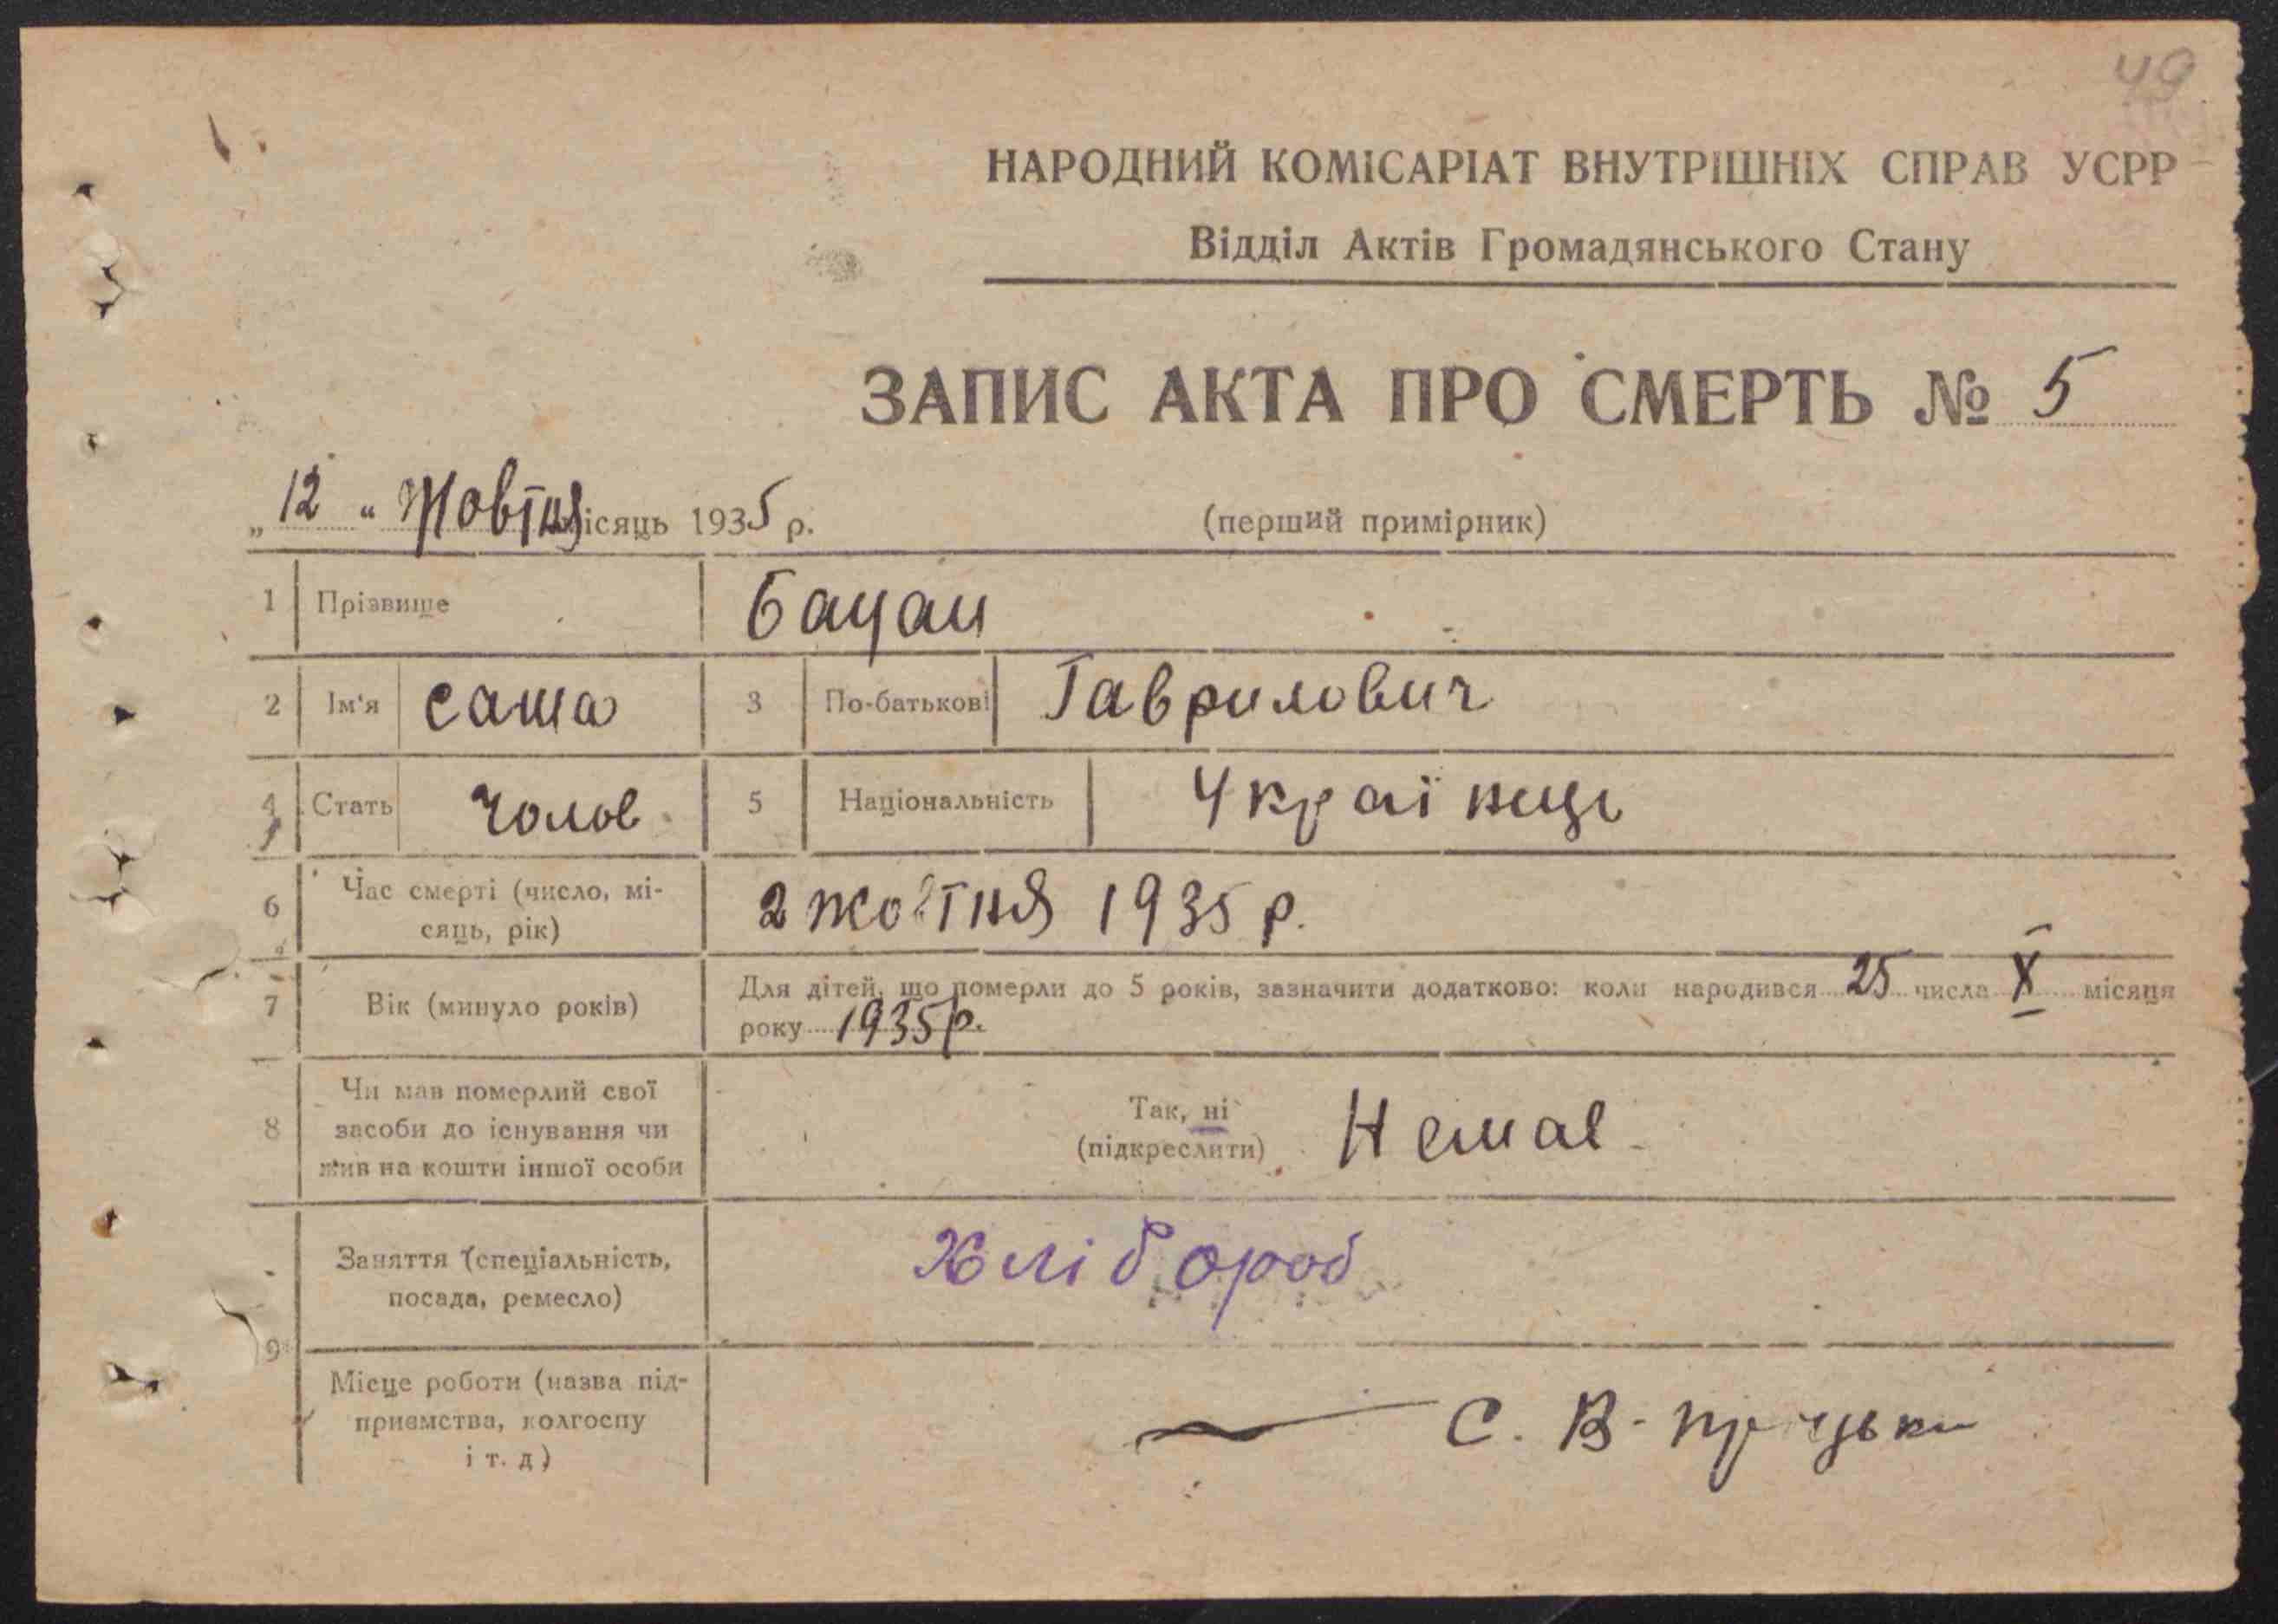 49
НАРОДНИЙ КОМІСАРІАТ ВНУТРІШНІХ СПРАВ УСРР
Відділ Актів Громадянського Стану
ЗАПИС АКТА ПРО СМЕРТЬ № 5
„12“ Жовтня місяць 1935 р.
(перший примірник)
1 Прізвище Бацан
2 Ім'я Саша 3 По-батькові Гаврилович
4 Стать Чолов 5 Національність Українець
6 Час смерті (число, мі-
сяць, рік) 2 жовтня 1935 р.
7 Вік (минуло років) Для дітей, що померли до 5 років, зазначити додатково: коли народився 25 числа X місяця
року 1935 р.
8 Чи мав померлий свої
засоби до існування чи
жив на кошти іншої особи
Так, ні
(підкреслити) Немає
9 Заняття (спеціальність,
посада, ремесло) Хлібороб
Місце роботи (назва під-
приємства, колгоспу
і т. д) С. В-